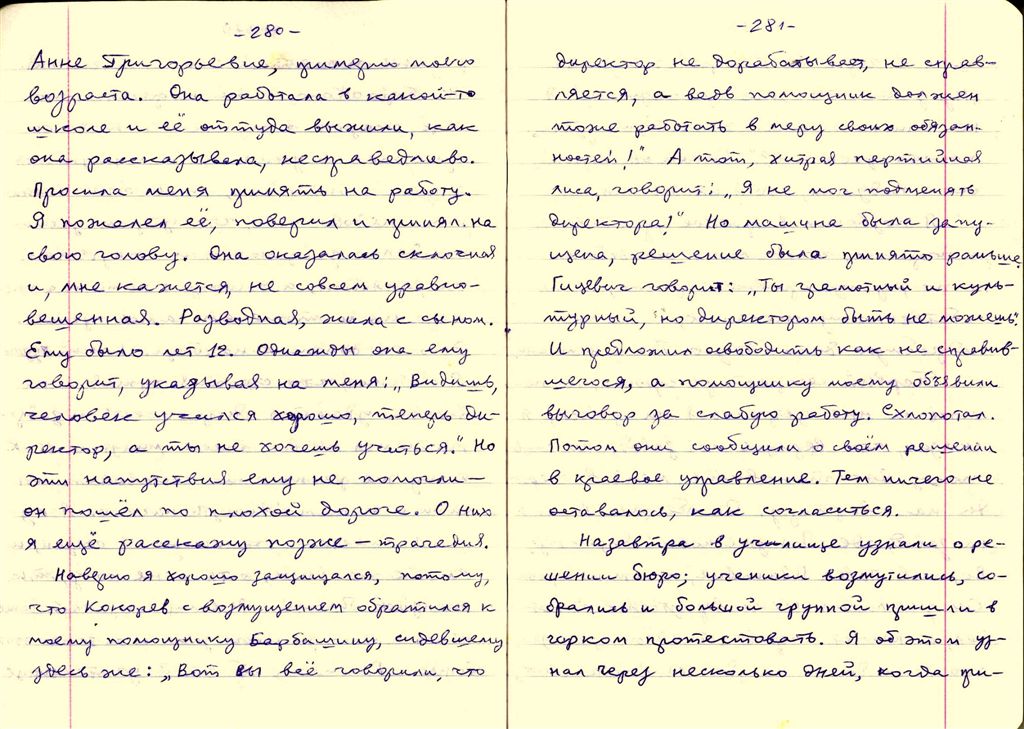 -280-
Анне Григорьевне, примерно моего
возраста. Она работала в какой-то
школе и её оттуда выжили, как
она рассказывала, несправедливо.
Просила меня принять на работу.
Я пожалел её, поверил и принял на
свою голову. Она оказалась склочная
и, мне кажется, не совсем уравно-
вешенная. Разводная, жила с сыном.
Ему было лет 12. Однажды она ему
говорит, указывая на меня: „Видишь,
человек учился хорошо, теперь ди-
ректор, а ты не хочешь учиться." Но
эти напутствия ему не помогли —
он пошёл по плохой дороге. О них
я ещё расскажу позже — трагедия.
Наверно я хорошо защищался, потому,
что Кокорев с возмущением обратился к
моему помощнику Барбашину, сидевшему
здесь же: „Вот вы всё говорили, что
-281-
директор не дорабатывает, не справ-
ляется, а ведь помощник должен
тоже работать в меру своих обязан-
ностей!" А тот, хитрая партийная
лиса, говорит: „Я не мог подменять
директора!" Но машина была запу-
щена, решение было принято раньше.
Гицевич говорит: „Ты грамотный и куль-
турный, но директором быть не можешь".
И предложил освободить как не справив-
шегося, а помощнику моему объявили
выговор за слабую работу. Схлопотал.
Потом они сообщили о своём решении
в краевое управление. Тем ничего не
оставалось, как согласиться.
Назавтра в училище узнали о ре-
шении бюро; ученики возмутились, со-
брались и большой группой пришли в
горком протестовать. Я об этом уз-
нал через несколько дней, когда при-